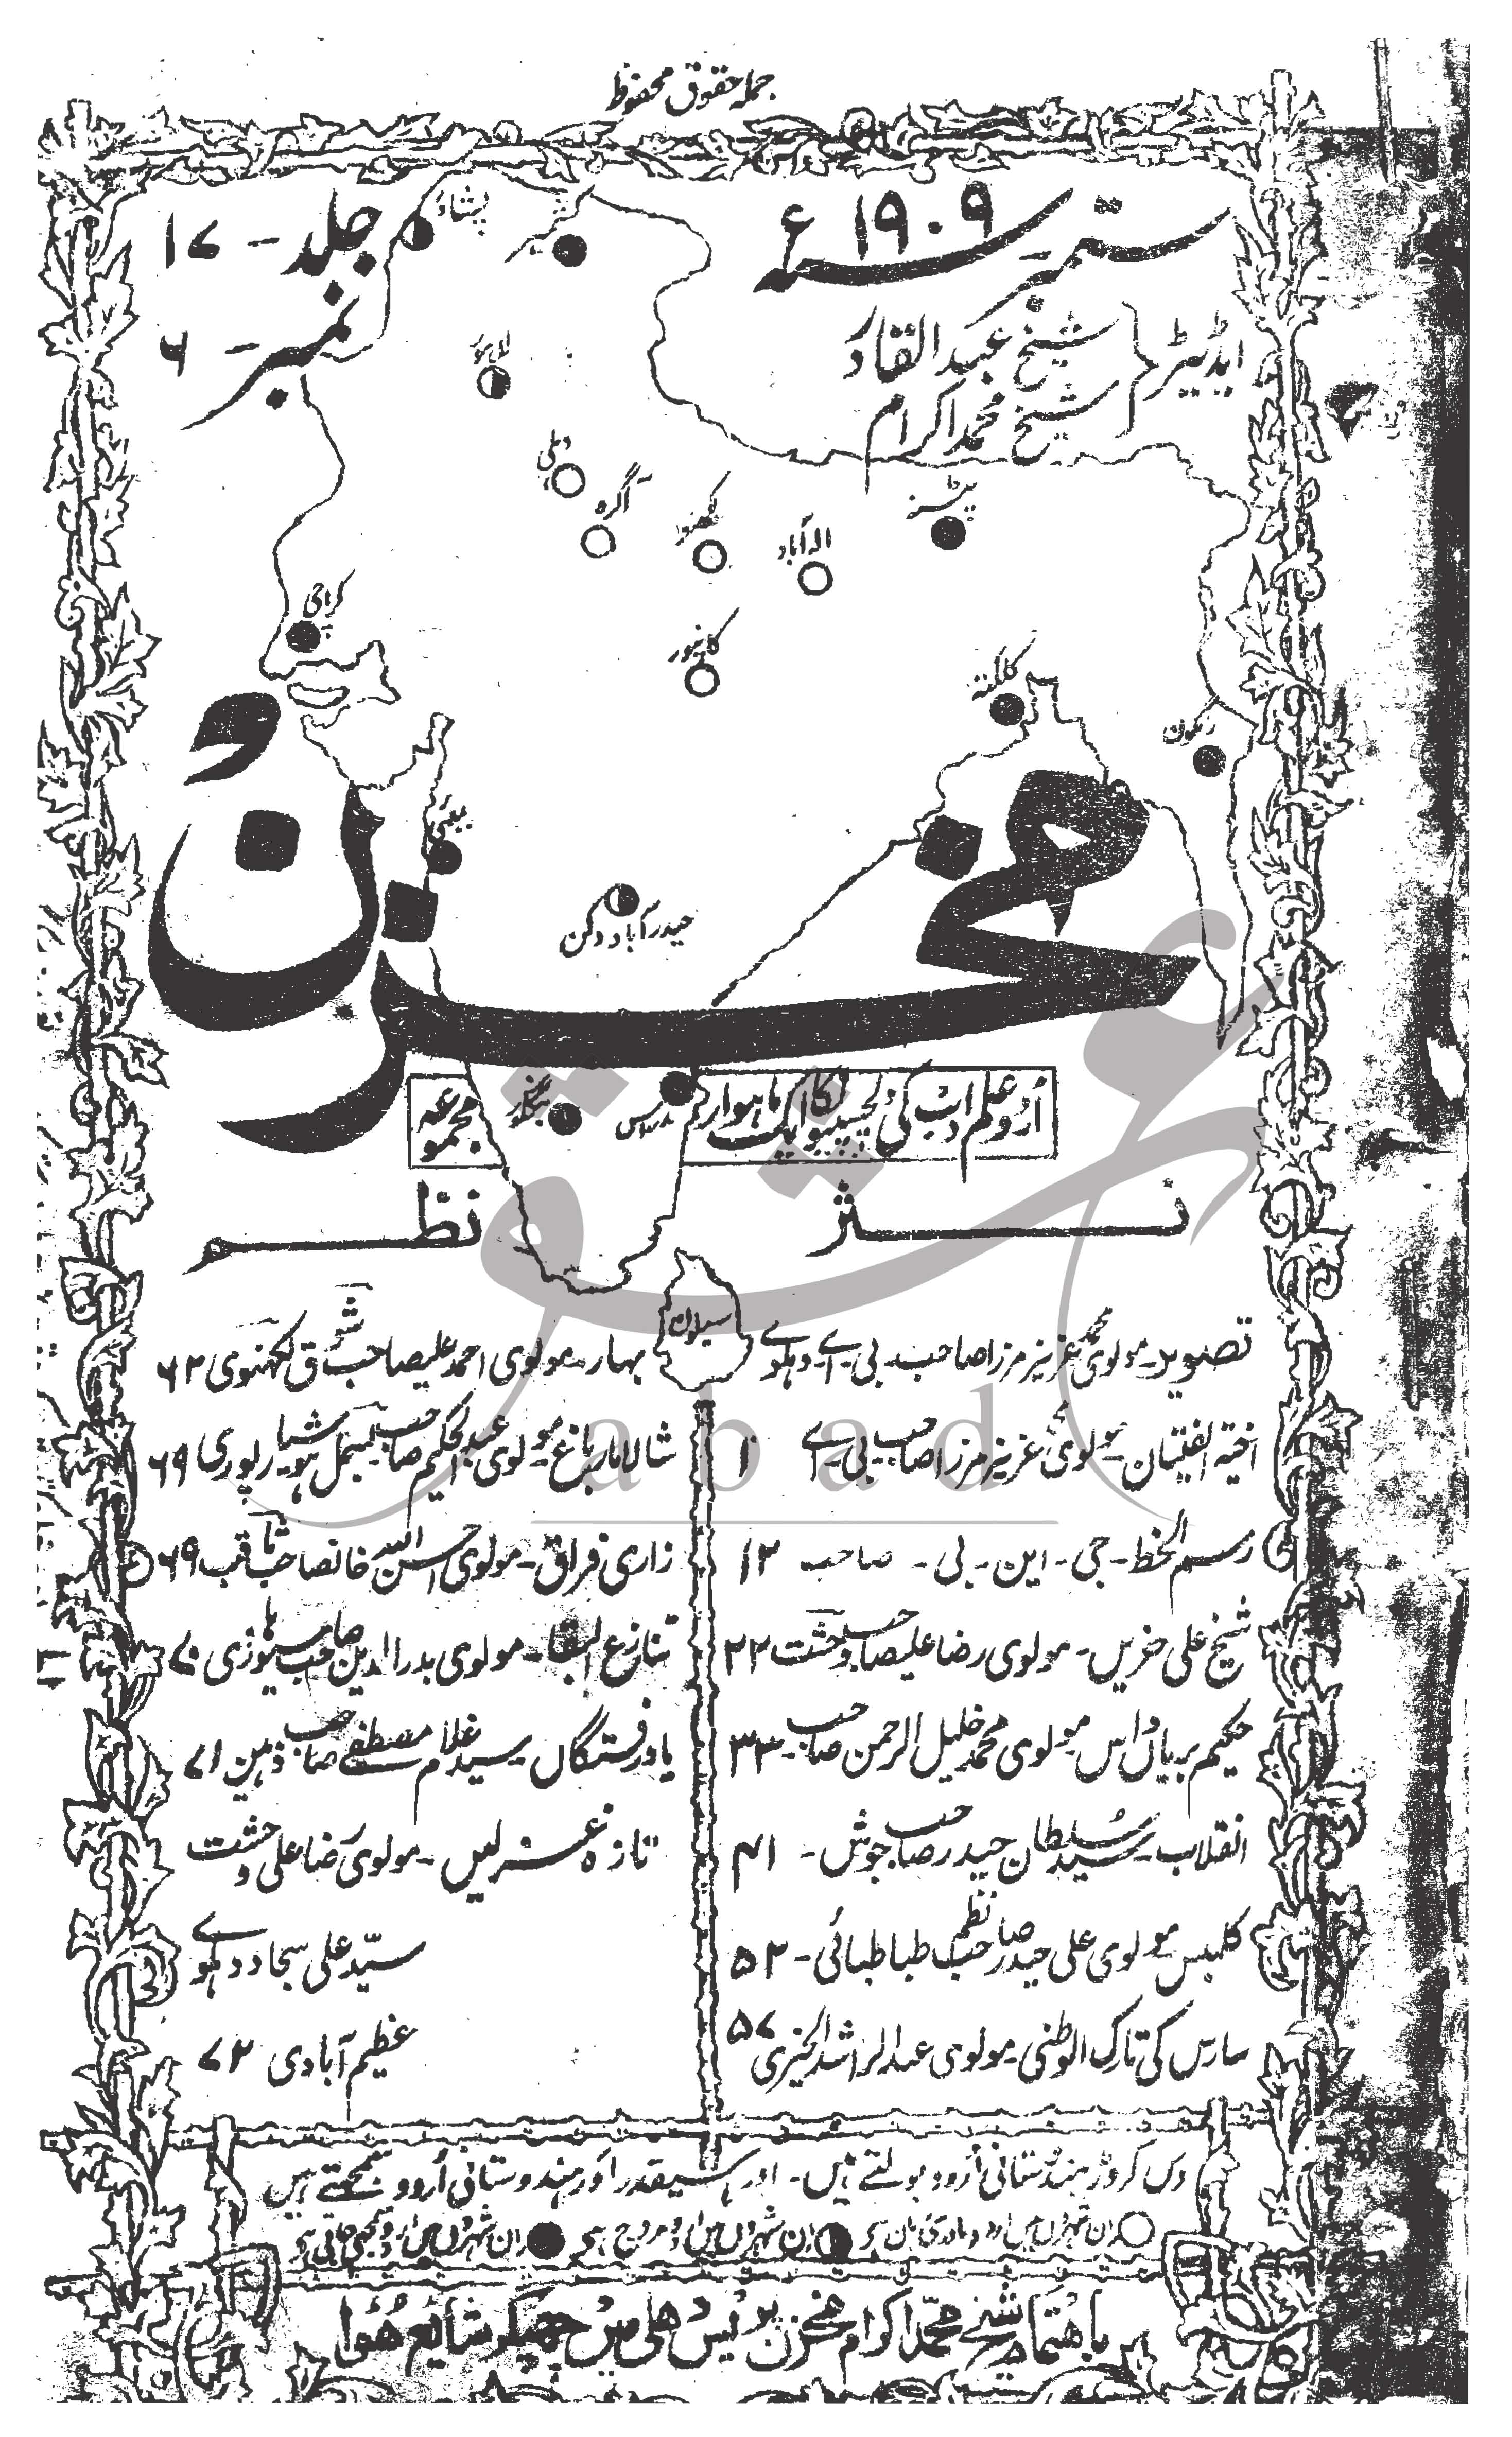 جملہ حقوق محفوظ
ستمبر سنہ ۱۹۰۹ء
جلد - ۱۷
نمبر - ۶
ایڈیٹر
شیخ عبدالقادر
شیخ محمد اکرام
پشاور
کشمیر
لاہور
دہلی
آگرہ
لکھنؤ
الہ آباد
پٹنہ
کراچی
کانپور
کلکتہ
رنگون
بمبئی
حیدرآباد دکن
مخزن
اُردو علم ادب کی دلچسپیوں کا ایک ماہوار مجموعہ
بنگلور
مدراس
سیلون
نثر
تصویر - مولوی محمد عزیز مرزا صاحب - بی - اے - دہلوی
اخیۃ الفیتان - مولوی محمد عزیز مرزا صاحب بی - اے ۱
رسم الخط - جی - این - بی - صاحب ۱۲
شیخ علی حزیں - مولوی رضا علیصاحب وحشت ۲۲
حکیم بریاں داس مولوی محمد خلیل الرحمن صاحب - ۳۳
انقلاب - سید سلطان حیدر صاحب جوش - ۴۱
کلمبس - مولوی علی حیدر صاحب نظم طباطبائی - ۵۲
سارس کی تارک الوطنی - مولوی عبدالراشد الخیری ۵۷
نظم
بہار - مولوی احمد علیصاحب شوق لکھنوی ۶۲
شالامار باغ - مولوی عبدالحکیم صاحب بسمل ہوشیارپوری ۶۹
زاری فراق - مولوی احسن اللہ خانصاحب ثاقب ۶۹
تنازع البقا - مولوی بدرالدین صاحب ۷۰
یاد رفتگاں سید غلام مصطفے صاحب ذہین ۷۱
تازہ غزلیں - مولوی رضا علی وحشت
سیّد علی سجاد دہلوی
عظیم آبادی ۷۲
دس کروڑ ہندوستانی اُردو بولتے ہیں - اور اسیقدر اور ہندوستانی اُردو سمجھتے ہیں
ان شہروں میں اردو مادری زبان ہے ان شہروں میں اردو مروج ہے ان شہروں میں اردو سمجھی جاتی ہے
باہتمام شیخ محمد اکرام مخزن پریس دہلی میں چھپکر شایع ہوا
abad